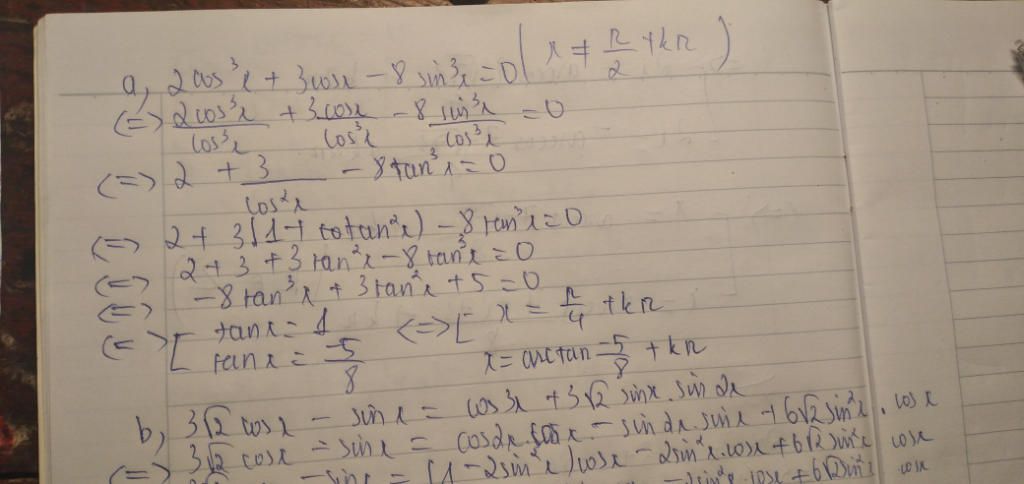 a, 2cos³x + 3cosx − 8 sin³x = 0 ( x ≠ π/2 + kπ )
(=) 2cos³x/cos³x + 3cosx/cos³x − 8 sin³x/cos³x = 0
<=> 2 + 3/cos²x − 8tan³x = 0
<=> 2 + 3(1 + tan²x) − 8tan³x = 0
<=> 2 + 3 + 3tan²x − 8tan³x = 0
<=> −8tan³x + 3tan²x + 5 = 0
<=> [ tanx = 1 <=> [ x = π/4 + kπ
tanx = −5/8 x = arctan −5/8 + kπ
b, 3√2 cosx − sinx = cos3x + 3√2 sinx . sin2x
<=> 3√2 cosx − sinx = cos2x . cosx − sin2x . sinx + 6√2 sin²x . cosx
− sinx = (1 − 2sin²x)cosx − 2sin²x . cosx + 6√2 sin²x cosx
− 2sin²x . cosx + 6√2 sin²x cosx